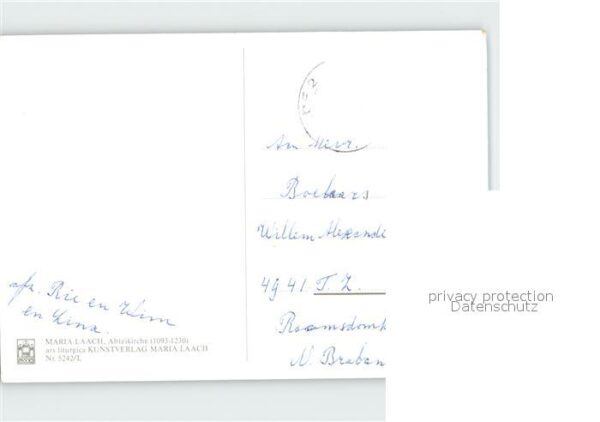 An Mevr.
Boelaars
Willem Alexande
4941 T.Z.
Raamsdonk
N. Braban
afz. Rie en Wim
en Lina.
MARIA LAACH, Abteikirche (1093-1230)
ars liturgica KUNSTVERLAG MARIA LAACH
Nr. 5242/L
privacy protection
Datenschutz